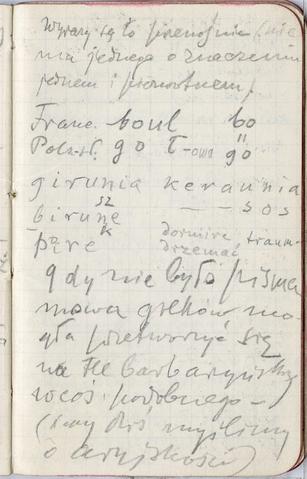 Wyrazy są to przenośnie (nie
ma jednego o znaczeniu
jednem i pierwotnem)
Franc. boul bo
Polsk. goł-owa go
girunia keraunia
birunę sz — sos
parę k dormire drzemać traum-
gdy nie było pisma
mowa gołków mo-
gła przetworzyć się
na tle barbaryjskim
w coś podobnego –
(czy dziś myślimy
o aryjskości)